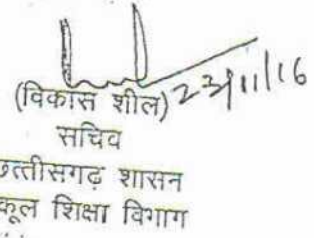 (विकास शील) 23/11/16
सचिव
छत्तीसगढ़ शासन
स्कूल शिक्षा विभाग